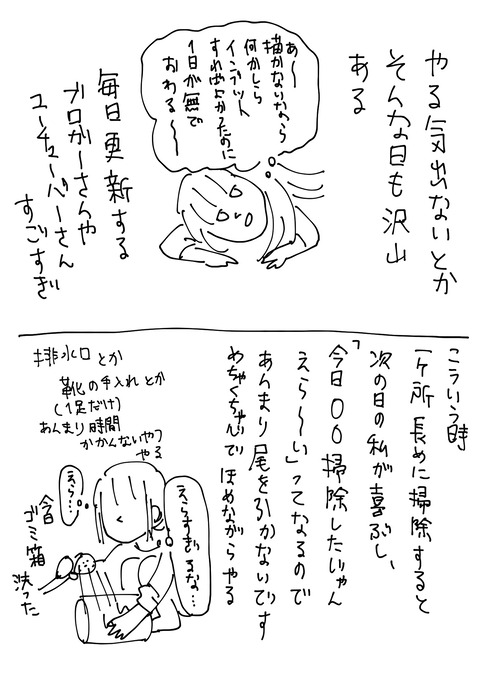 やる気出ないとか
そんな日も沢山
ある
あ〜
描かないなら
何かしら
インプット
すればよかったのに
1日が無で
おわる〜
毎日更新する
ブロガーさんや
ユーチューバーさん
すごすぎ
こういう時
一ヶ所長めに掃除すると
次の日の私が喜ぶし、
「今日〇〇掃除したじゃん
えら〜い」ってなるので
あんまり尾を引かないです
めちゃくちゃ
ほめながらやる
排水口とか
靴の手入れとか
(1足だけ)
あんまり時間
かかんないやつ
やる
えらすぎるな…
えら…
今日
ゴミ箱
洗った